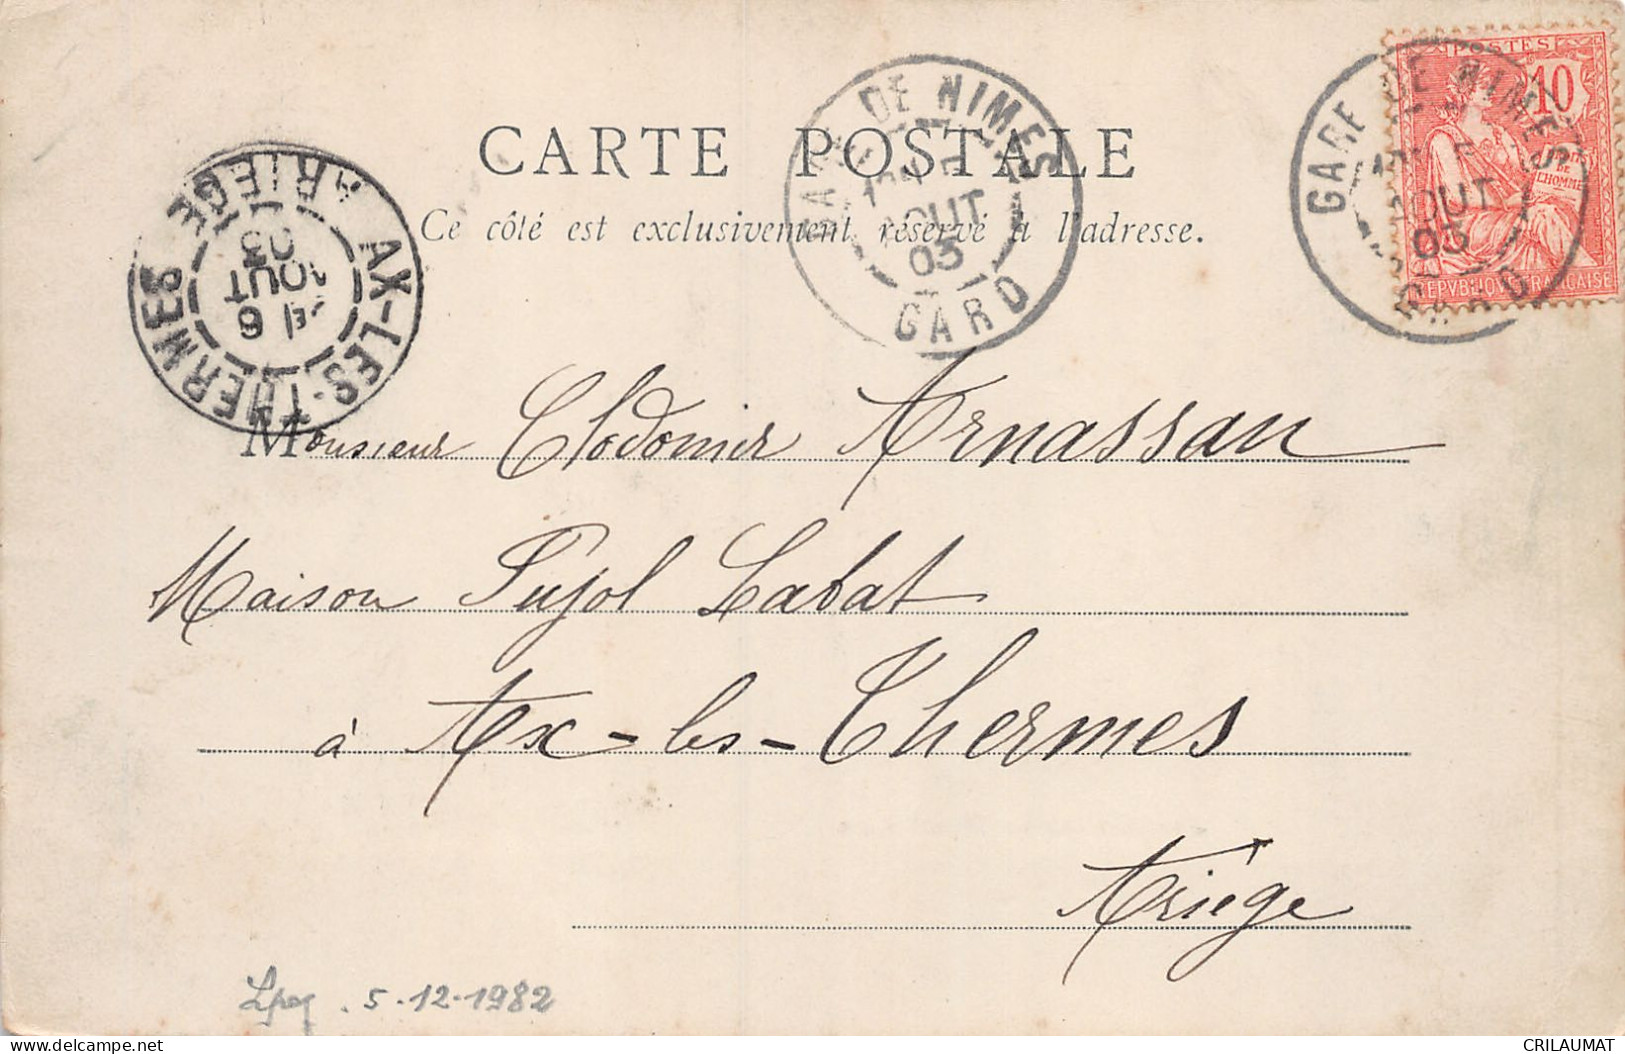 CARTE POSTALE
Ce côté est exclusivement réservé à l'adresse.
GARE DE NIMES
AOUT
03
GARD
GARE DE NIMES
AOUT
03
GARD
POSTES
10
DE
L'HOMME
REPVBLIQVE FRANÇAISE
AX-LES-THERMES
ARIEGE
6
AOUT
03
Monsieur Clodomir Arnassan
Maison Pujol Labat
à Ax-les-Thermes
Ariège
5-12-1982
delcampe.net
CRILAUMAT